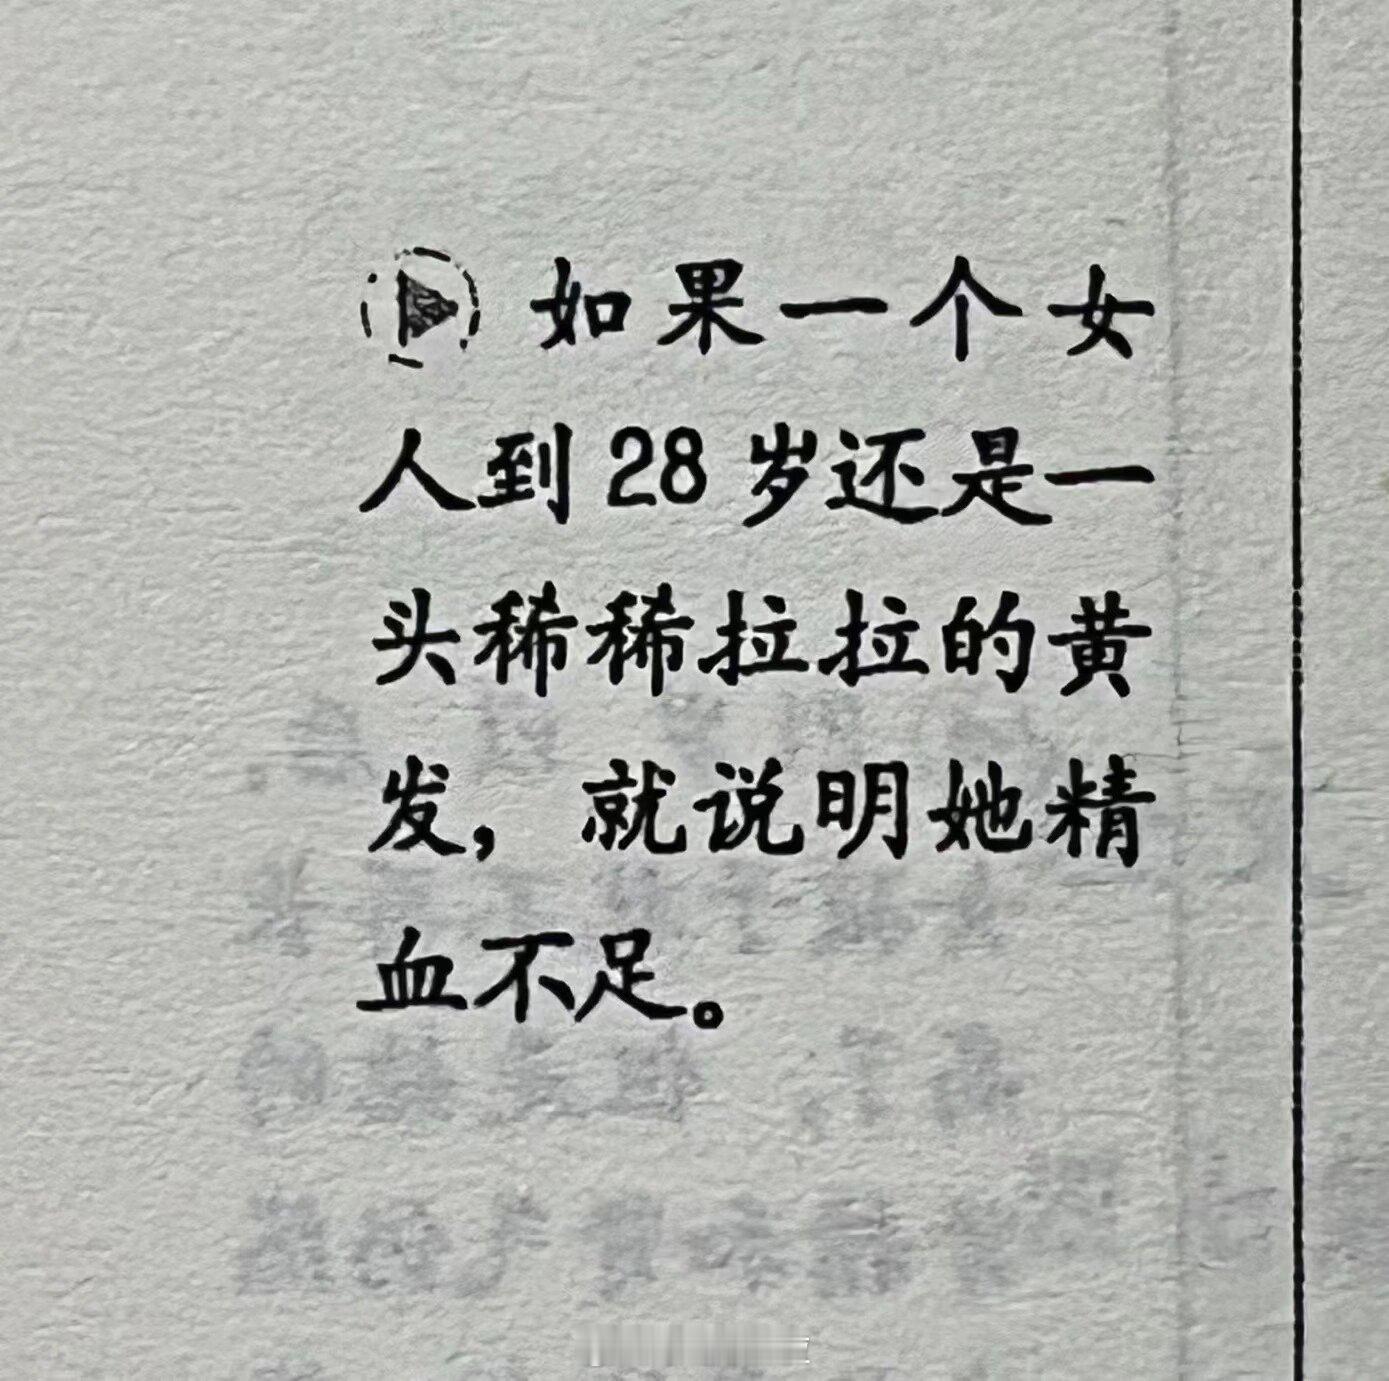 如果一个女
人到28岁还是一
头稀稀拉拉的黄
发，就说明她精
血不足。